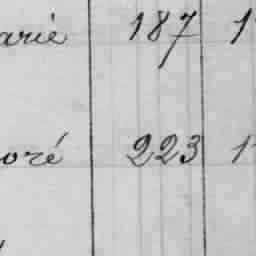 arié 187 1
oré 223 1